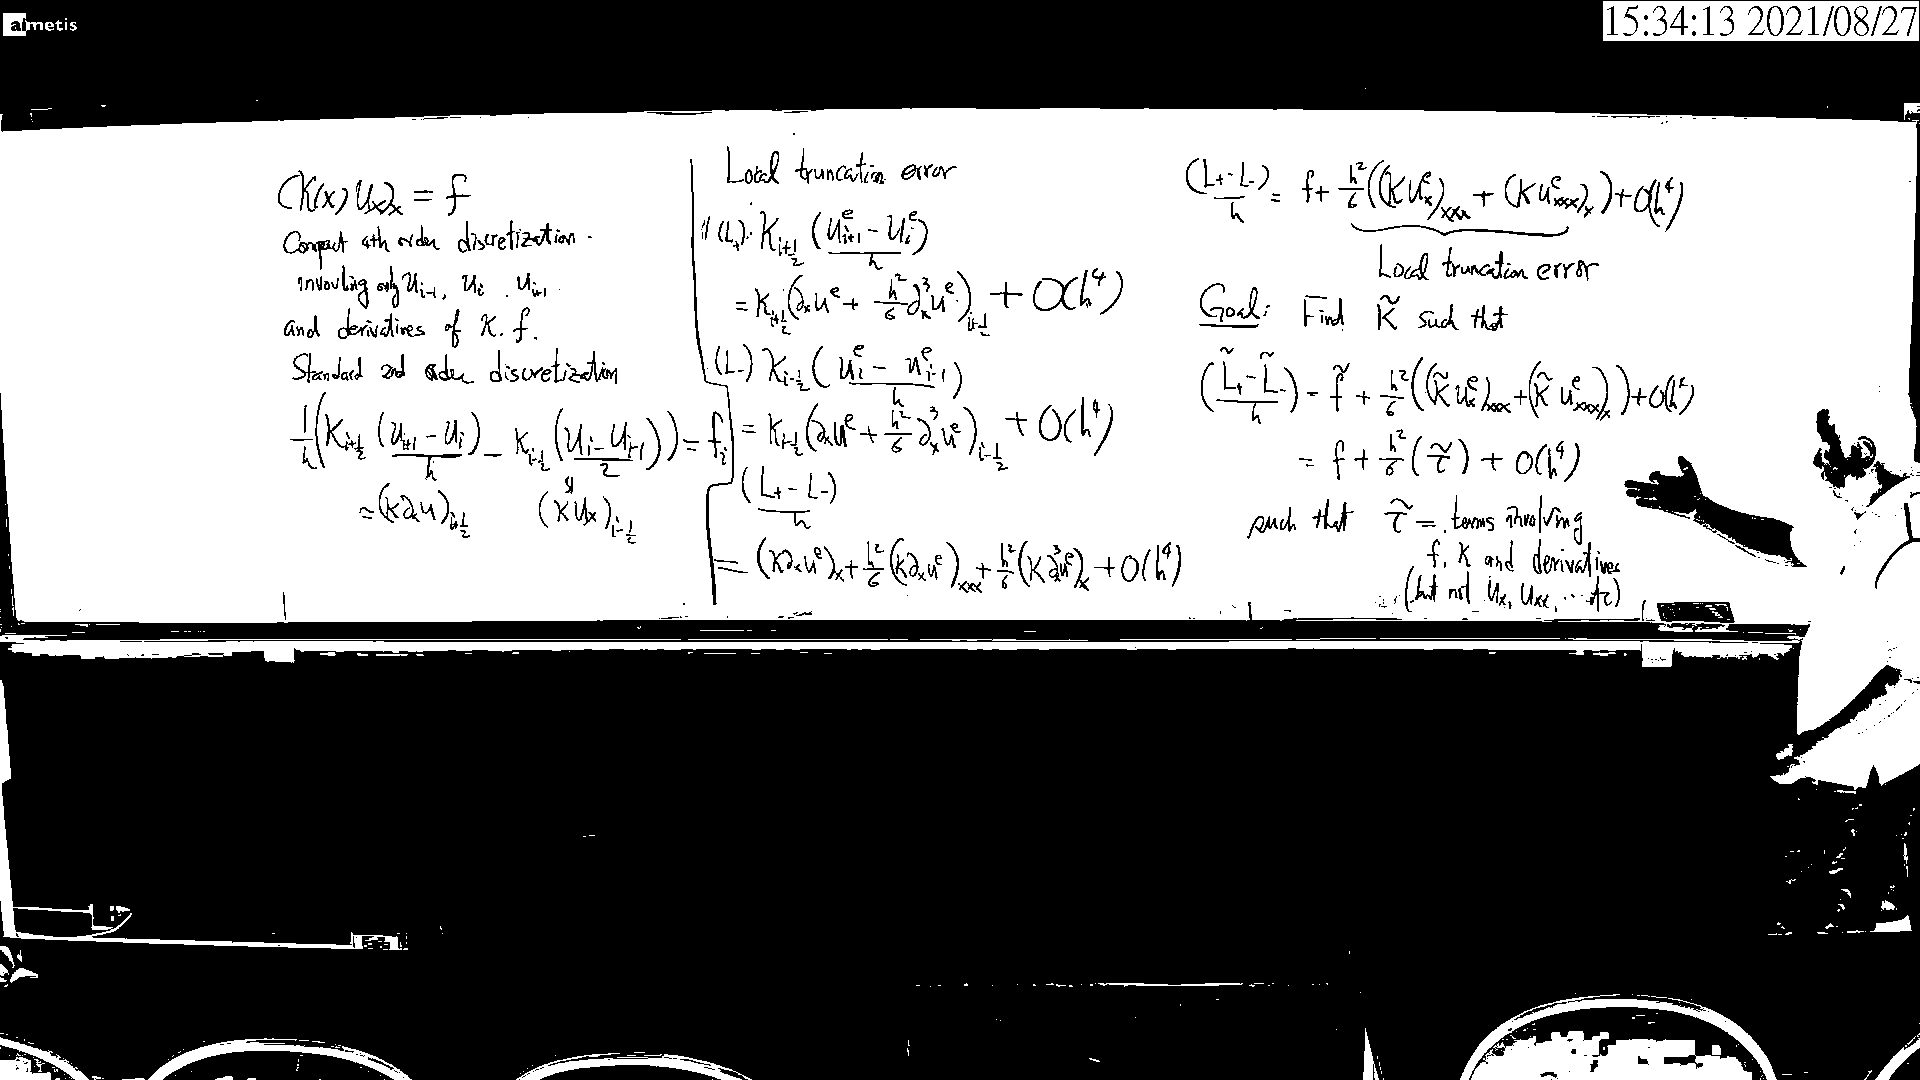 aimetis
15:34:13 2021/08/27
(K(x) Ux)x = f
Compact 4th order discretization.
involving only Ui-1, Ui, Ui+1
and derivatives of K. f.
Standard 2nd order discretization
1/h (K_{i+1/2} (U_{i+1} - U_i)/h - K_{i-1/2} (U_i - U_{i-1})/2) = f_i
≈ (K∂xU)_{i+1/2} (KUx)_{i-1/2}
Local truncation error
(L+). K_{i+1/2} (U^e_{i+1} - U^e_i)/h
= K_{i+1/2} (∂x u^e + h²/6 ∂x³ u^e)_{i+1/2} + O(h⁴)
(L-) K_{i-1/2} (U^e_i - U^e_{i-1})/h
= K_{i-1/2} (∂x u^e + h²/6 ∂x³ u^e)_{i-1/2} + O(h⁴)
(L+ - L-)/h
= (K∂x u^e)x + h²/6 (K∂x u^e)xxx + h²/6 (K∂x³ u^e)x + O(h⁴)
(L+ - L-)/h = f + h²/6 ((K U^e_x)xxx + (K U^e_xxx)x) + O(h⁴)
Local truncation error
Goal: Find K̃ such that
(L̃+ - L̃-)/h = f̃ + h²/6 ((K̃ u^e_x)xxx + (K̃ u^e_xxx)x) + O(h⁴)
= f + h²/6 (τ̃) + O(h⁴)
such that τ̃ = terms involving
f, K and derivatives
(but not Ux, Uxx, ... etc)